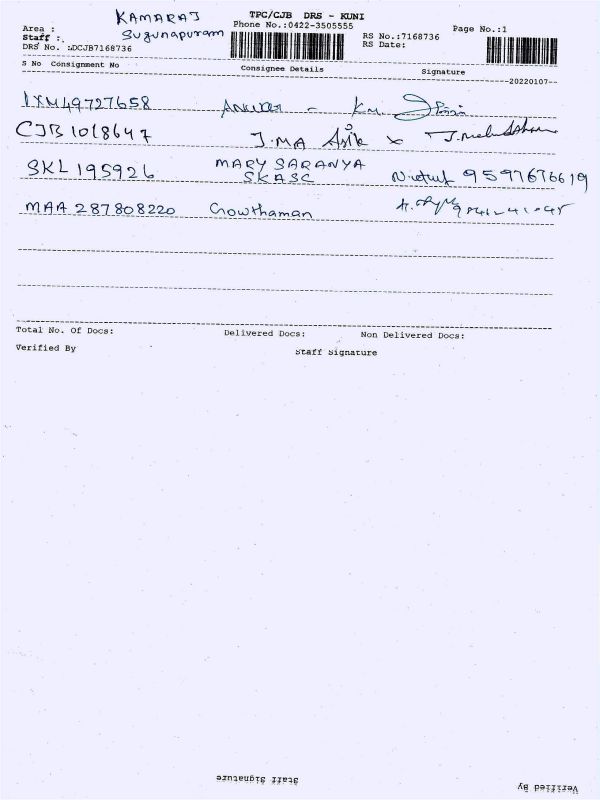 KAMARAJ TPC/CJB DRS - KUNI
Area : Sugunapuram Phone No.:0422-3505555 Page No.:1
Staff : RS No.:7168736
DRS No. :DCJB7168736 RS Date:
S No Consignment No Consignee Details Signature
20220107--
IXM49727658
CJB1018647 J.MA Asik x
SKL195926 MARY SARANYA 9597676619
SKASC
MAA 287808220 Gowthaman
Total No. Of Docs: Delivered Docs: Non Delivered Docs:
Verified By Staff Signature
Staff Signature Verified By